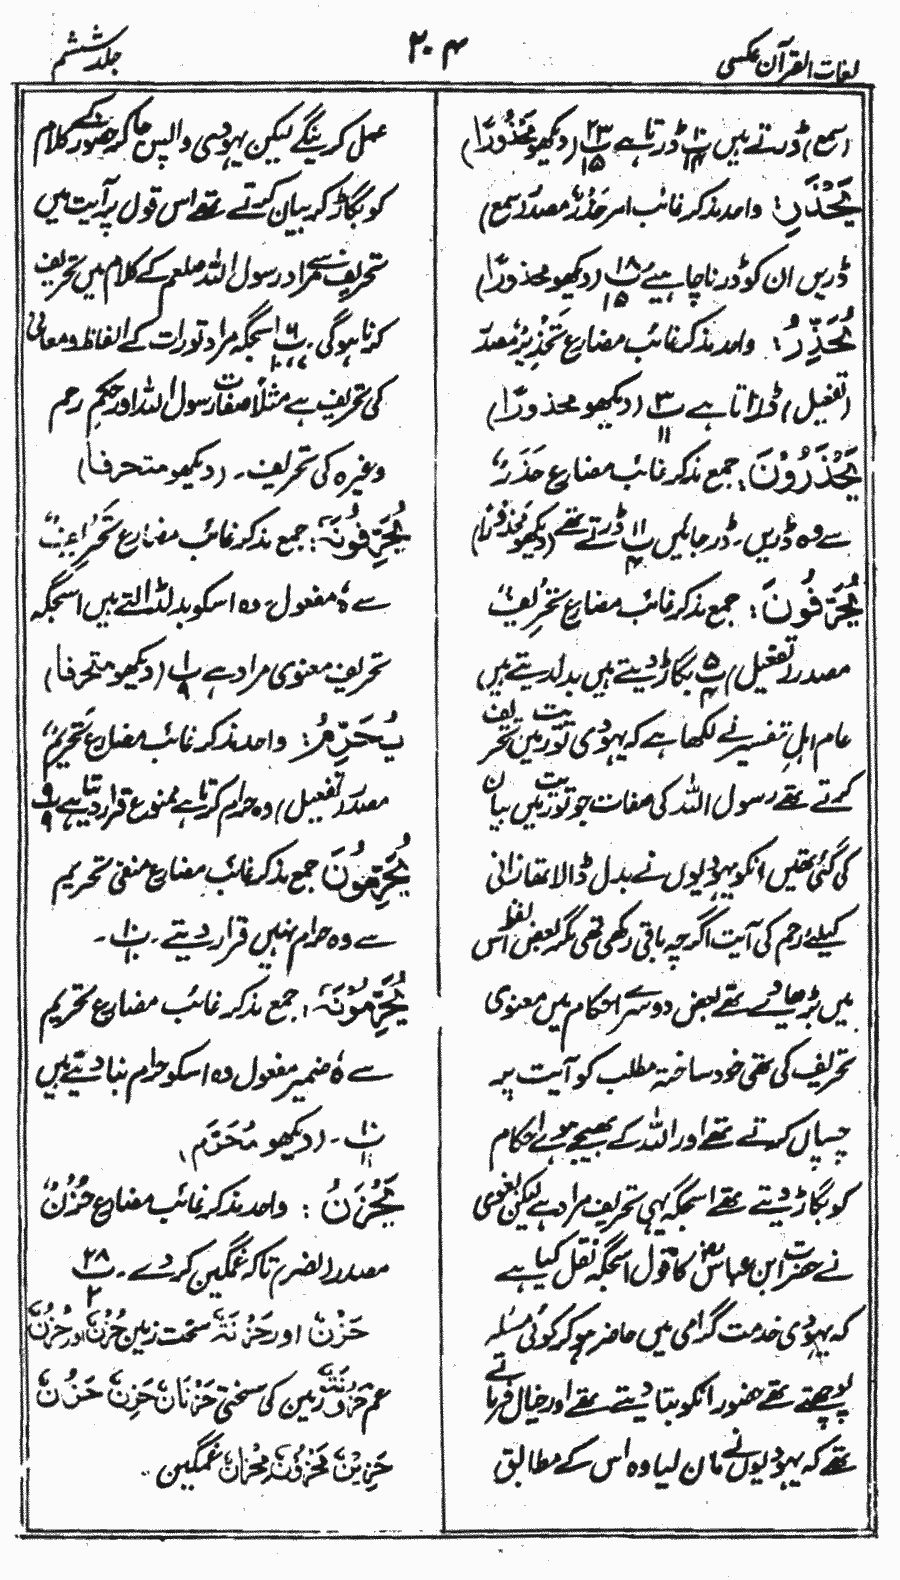 لغات القرآن عکسی
۲۰۴
جلد ششم
(سمع) ڈرتے ہیں پ۱۰/۱۴ ڈرتا ہے پ۲۳/۱۵ (دیکھو محذورًا)
یَحْذَرِ: واحد مذکر غائب امر حَذَرٌ مصدر (سمع)
ڈریں ان کو ڈرنا چاہیئے پ۱۸/۱۵ (دیکھو محذورًا)
یُحَذِّرُ: واحد مذکر غائب مضارع تَحْذِیْرٌ مصدر
(تفعیل) ڈراتا ہے پ۳/۱۱ (دیکھو محذورًا)
یَحْذَرُوْنَ: جمع مذکر غائب مضارع حَذَرٌ
سے وہ ڈریں۔ ڈر جائیں پ۱۱/۴ ڈرتے تھے (دیکھو محذورًا)
یُحَرِّفُونَ: جمع مذکر غائب مضارع تَحْرِیفٌ
مصدر (تفعیل) پ۵/۴ بگاڑ دیتے ہیں بدل دیتے ہیں
عام اہلِ تفسیر نے لکھا ہے کہ یہودی توریت میں تحریف
کرتے تھے رسول اللہ کی صفات جو توریت میں بیان
کی گئی تھیں انکو یہودیوں نے بدل ڈالا تھا زانی
کیلئے رجم کی آیت اگرچہ باقی رکھی تھی مگر بعض لفظ اس
میں بڑھا دیے تھے بعض دوسرے احکام میں معنوی
تحریف کی تھی خود ساختہ مطلب کو آیت پر
چسپاں کرتے تھے اور اللہ کے بھیجے ہوے احکام
کو بگاڑ دیتے تھے اسجگہ یہی تحریف مراد ہے لیکن بغوی
نے حضرت ابن عباسؓ کا قول اسجگہ نقل کیا ہے
کہ یہودی خدمت گرامی میں حاضر ہو کر کوئی مسئلہ
پوچھتے تھے حضور انکو بتا دیتے تھے اور خیال فرماتے
تھے کہ یہودیوں نے مان لیا وہ اس کے مطابق
عمل کرینگے لیکن یہودی واپس جا کر حضور کے کلام
کو بگاڑ کر بیان کرتے تھے اس قول پر آیت میں
تحریف سے مراد رسول اللہ صلعم کے کلام میں تحریف
کرنا ہوگی۔ پ۶ اسجگہ مراد تورات کے الفاظ و معانی
کی تحریف ہے مثلاً صفات رسول اللہ اور حکم رجم
وغیرہ کی تحریف۔ (دیکھو متحرفاً)
یُحَرِّفُونَہٗ: جمع مذکر غائب مضارع تَحْرِیفٌ
سے ہٗ مفعول۔ وہ اسکو بدل ڈالتے ہیں اسجگہ
تحریف معنوی مراد ہے پ۱/۹ (دیکھو متحرفاً)
یُحَرِّمُ: واحد مذکر غائب مضارع تَحْرِیْمٌ
مصدر (تفعیل) وہ حرام کرتا ہے ممنوع قرار دیتا ہے پ۹/۹
یُحَرِّمُونَ جمع مذکر غائب مضارع منفی تحریم
سے وہ حرام نہیں قرار دیتے۔ پ۱۰۔
یُحَرِّمُوْنَہٗ: جمع مذکر غائب مضارع تحریم
سے ہٗ ضمیر مفعول وہ اسکو حرام بنا دیتے ہیں
پ۱۰/۱۱۔ (دیکھو مُحَرَّم)
یَحْزَنُ: واحد مذکر غائب مضارع حُزْنٌ
مصدر (نصر) تاکہ غمگین کر دے۔ پ۲۸/۲
حَزْنٌ اور حَزْنَۃٌ سخت زمین حُزْنٌ اور حُزُنٌ
غم حُزُوْنَۃٌ زمین کی سختی حَزْنَانٌ حَزِنٌ حَزُنٌ
حَزِیْنٌ مَحْزُوْنٌ مِحْزَانٌ غمگین۔